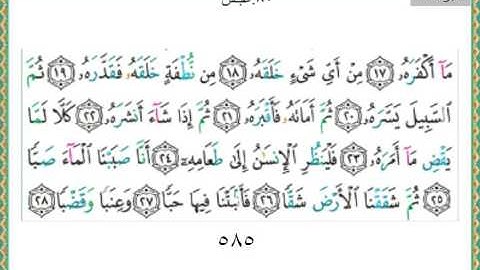 ٨٠.عبس
مَآ أَكْفَرَهُۥ ١٧ مِنْ أَيِّ شَىْءٍ خَلَقَهُۥ ١٨ مِن نُّطْفَةٍ خَلَقَهُۥ فَقَدَّرَهُۥ ١٩ ثُمَّ
ٱلسَّبِيلَ يَسَّرَهُۥ ٢٠ ثُمَّ أَمَاتَهُۥ فَأَقْبَرَهُۥ ٢١ ثُمَّ إِذَا شَآءَ أَنشَرَهُۥ ٢٢ كَلَّا لَمَّا
يَقْضِ مَآ أَمَرَهُۥ ٢٣ فَلْيَنظُرِ ٱلْإِنسَٰنُ إِلَىٰ طَعَامِهِۦٓ ٢٤ أَنَّا صَبَبْنَا ٱلْمَآءَ صَبًّا
٢٥ ثُمَّ شَقَقْنَا ٱلْأَرْضَ شَقًّا ٢٦ فَأَنۢبَتْنَا فِيهَا حَبًّا ٢٧ وَعِنَبًا وَقَضْبًا ٢٨
٥٨٥